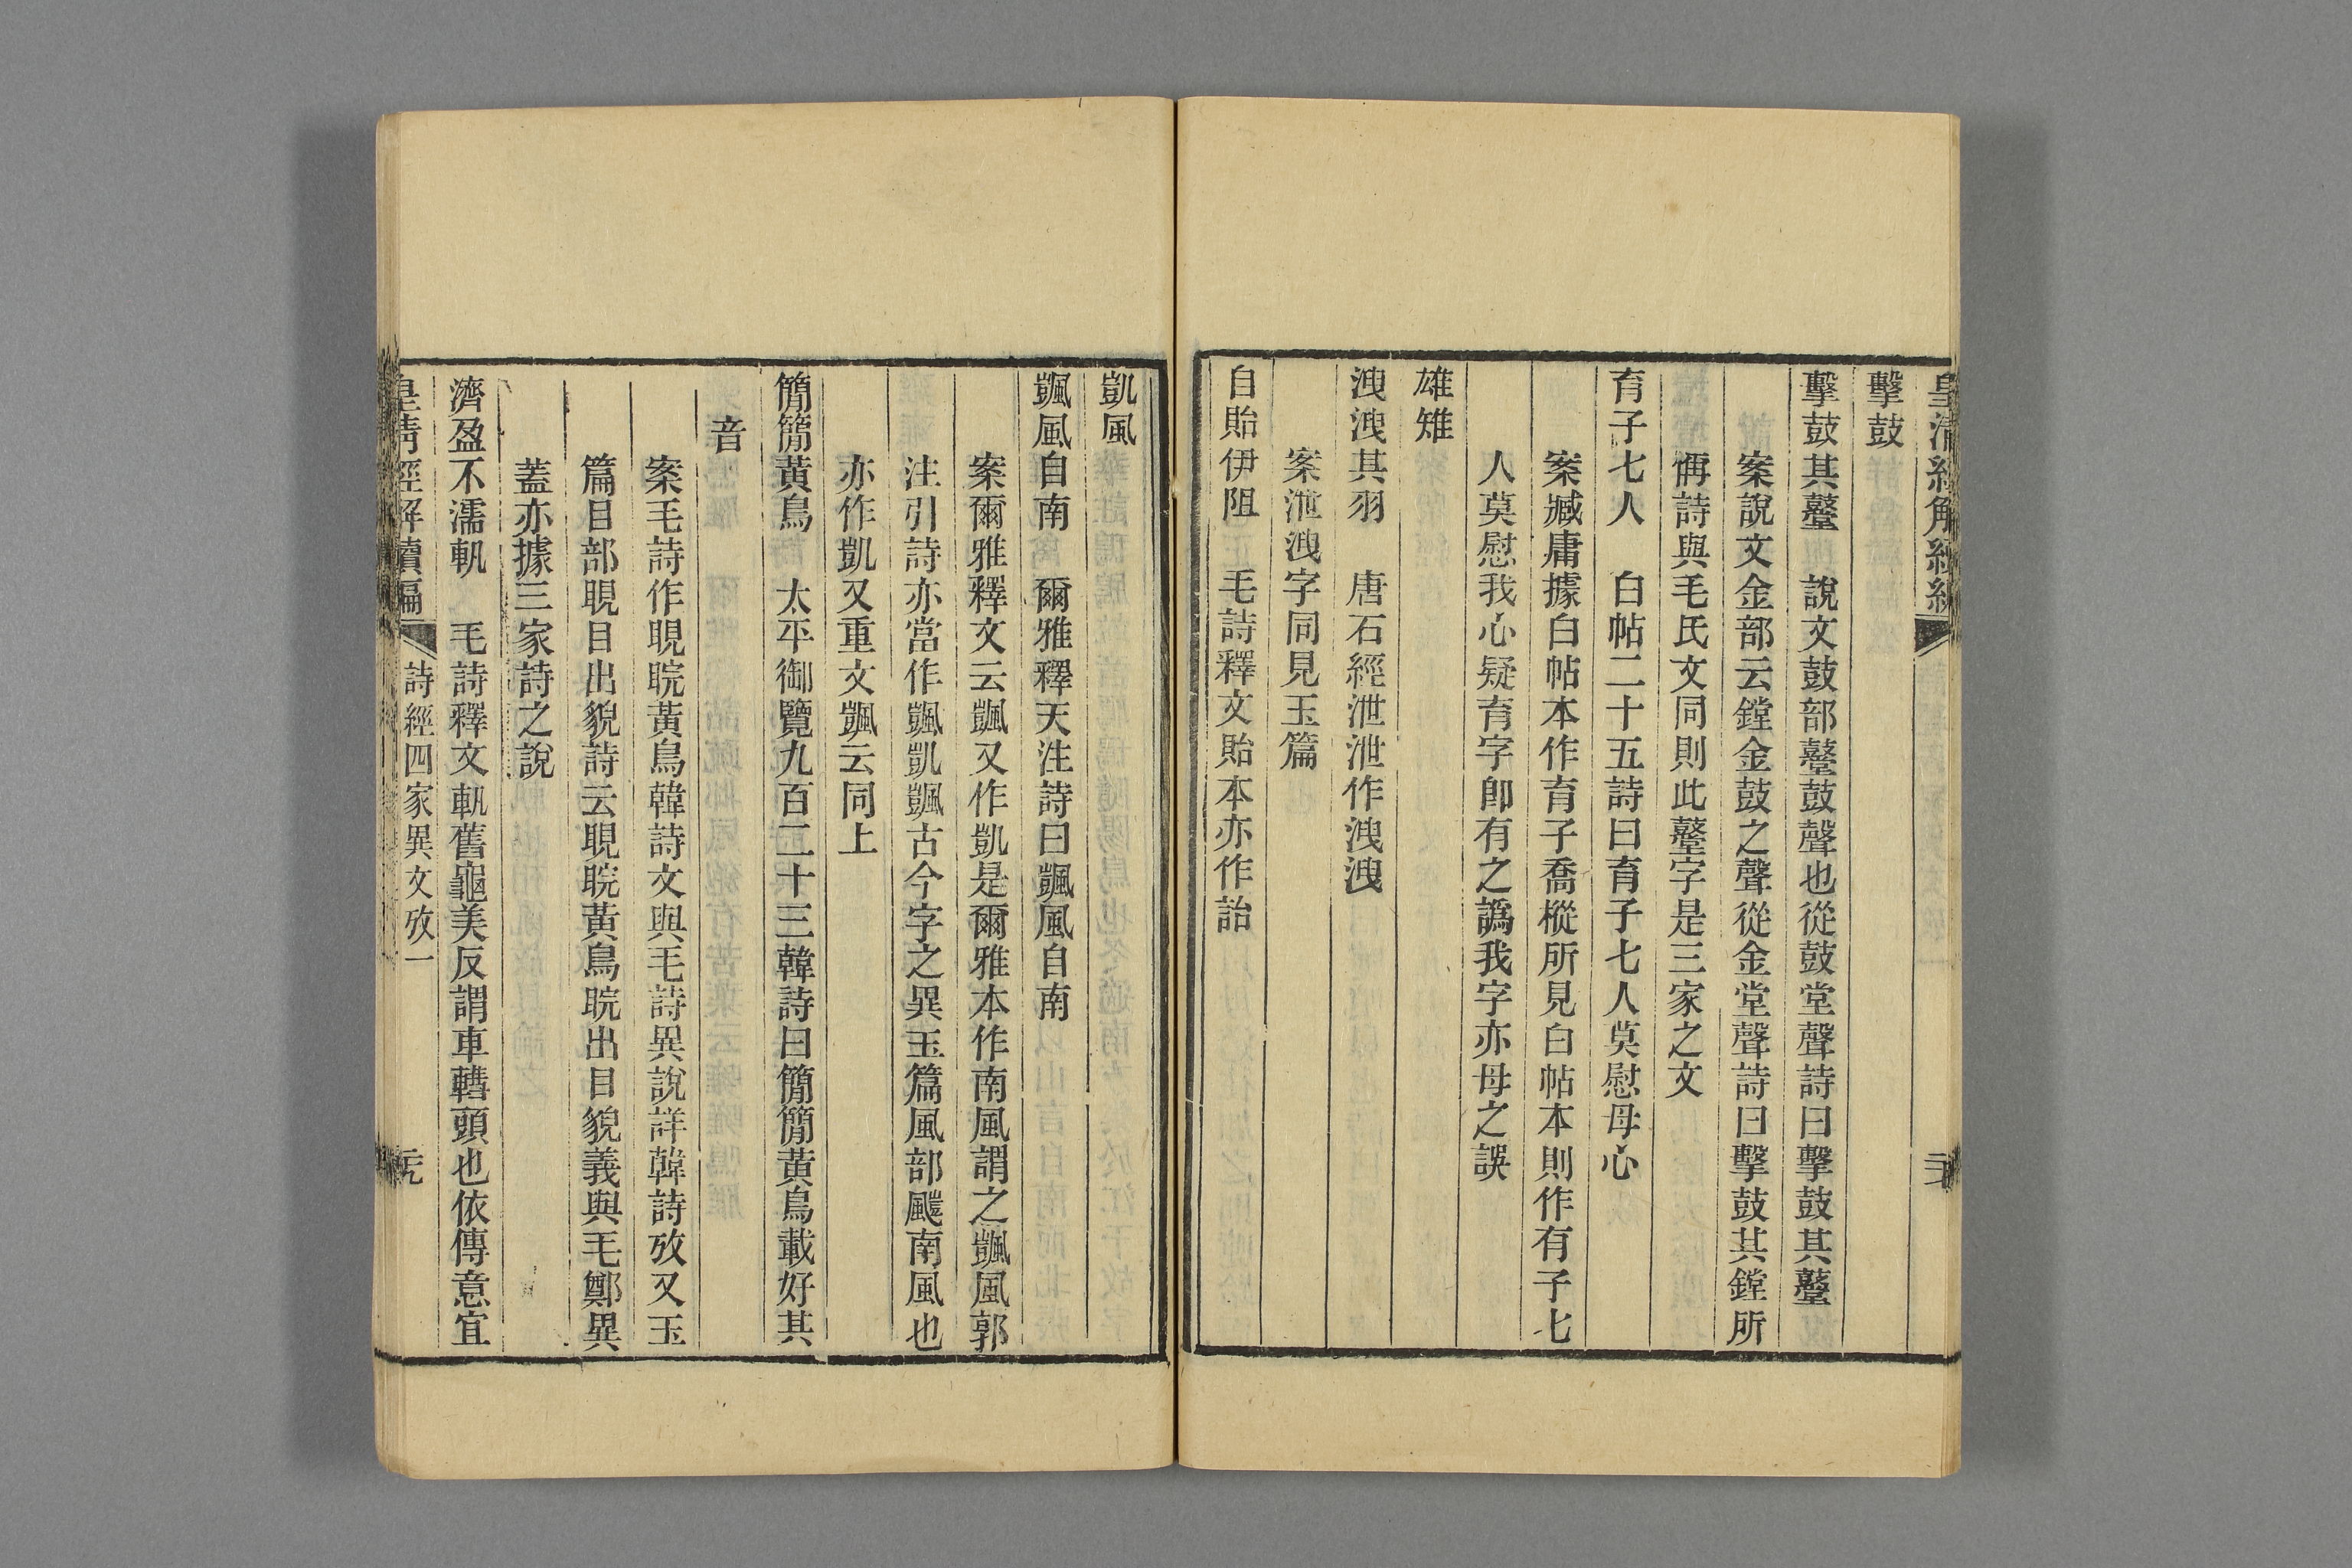 擊鼓
擊鼓其鼞　說文鼓部鼞鼓聲也從鼓堂聲詩曰擊鼓其鼞
案說文金部云鏜金鼓之聲從金堂聲詩曰擊鼓其鏜所
偁詩與毛氏文同則此鼞字是三家之文
育子七人　白帖二十五詩曰育子七人莫慰母心
案臧庸據白帖本作育子喬樅所見白帖本則作有子七
人莫慰我心疑育字卽有之譌我字亦母之誤
雄雉
洩洩其羽　唐石經泄泄作洩洩
案泄洩字同見玉篇
自貽伊阻　毛詩釋文貽本亦作詒
凱風
颽風自南　爾雅釋天注詩曰颽風自南
案爾雅釋文云颽又作凱是爾雅本作南風謂之颽風郭
注引詩亦當作颽凱颽古今字之異玉篇風部颽南風也
亦作凱又重文颽云同上
簡簡黃鳥　太平御覽九百二十三韓詩曰簡簡黃鳥載好其
音
案毛詩作睍睆黃鳥韓詩文與毛詩異說詳韓詩攷又玉
篇目部睍目出貌詩云睍睆黃鳥睆出目貌義與毛鄭異
蓋亦據三家詩之說
濟盈不濡軓　毛詩釋文軓舊龜美反謂車轊頭也依傳意宜
皇清經解續編　詩經四家異文攷一